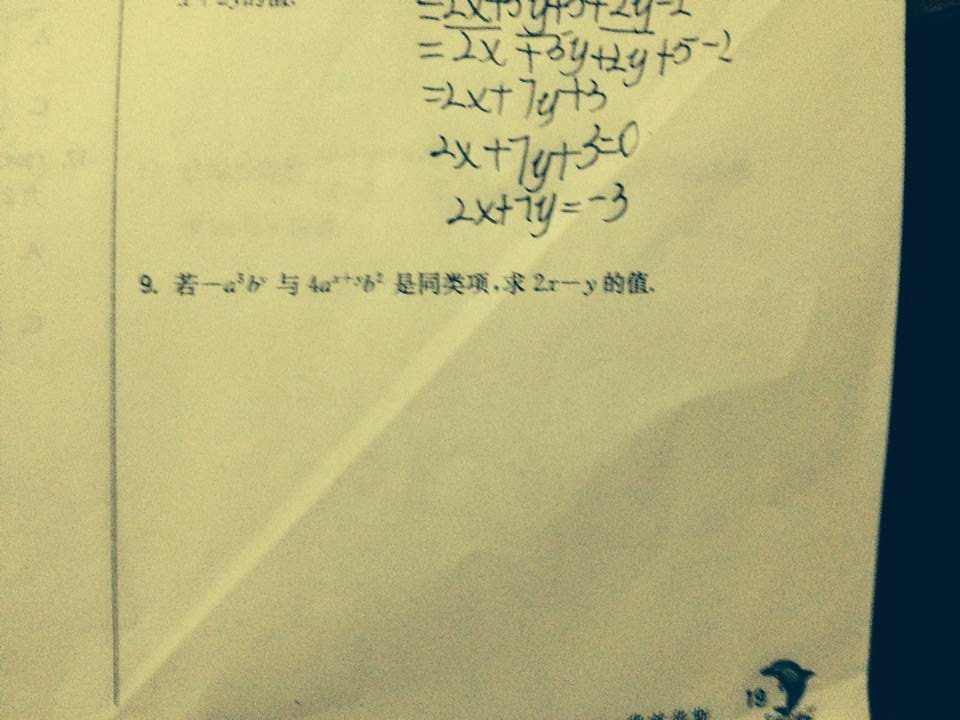 =2x+5y+5+2y-2
=2x+5y+2y+5-2
=2x+7y+3
2x+7y+3=0
2x+7y=-3
9. 若-a³bʸ与4aˣ⁺ʸb²是同类项,求2x-y的值.
19